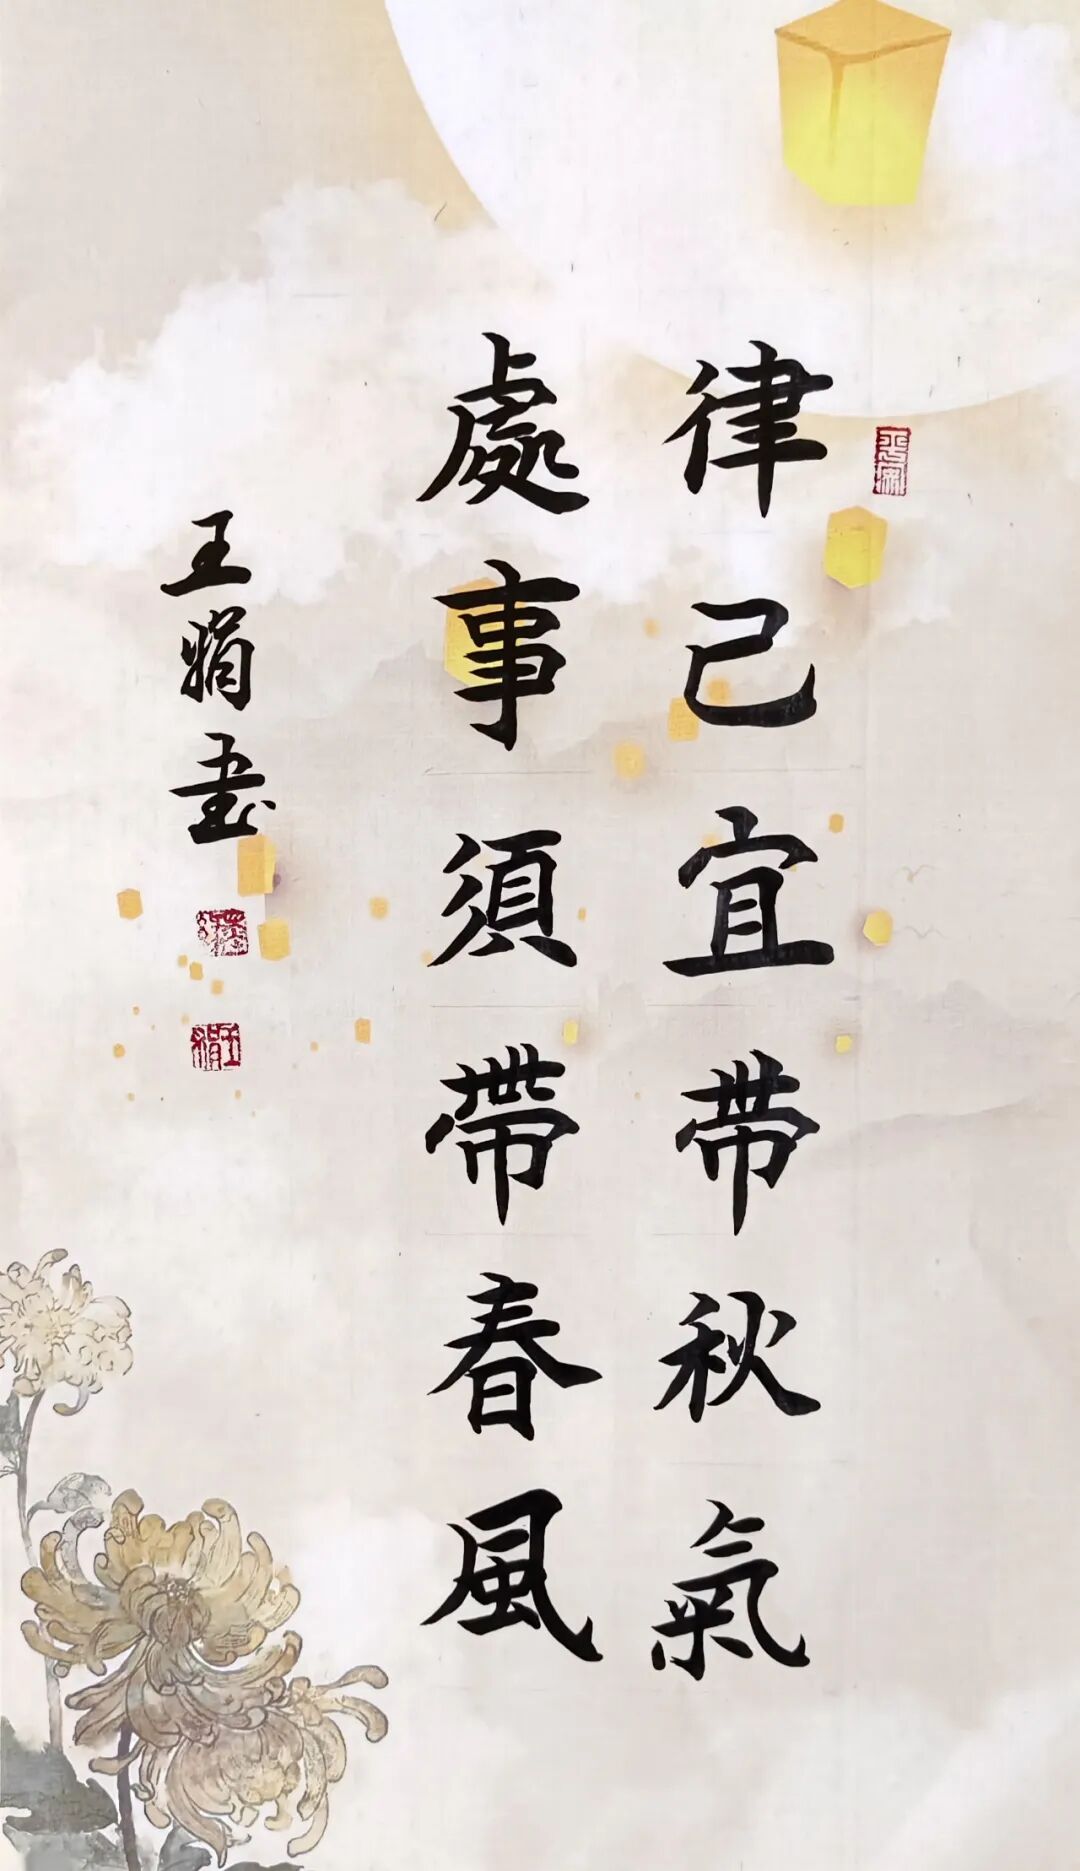 律己宜帶秋氣
處事須帶春風
王娟書
王娟